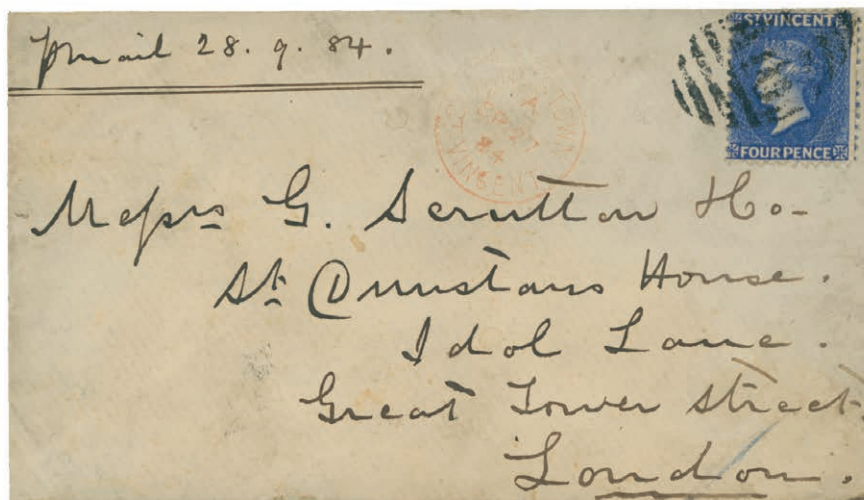 p mail 28. 9. 84.
ST VINCENT
FOUR PENCE
A
SP 27
84
ST VINCENT
Messrs G. Scrutton
St. Dunstans House.
Idol Lane.
Great Tower Street,
London.